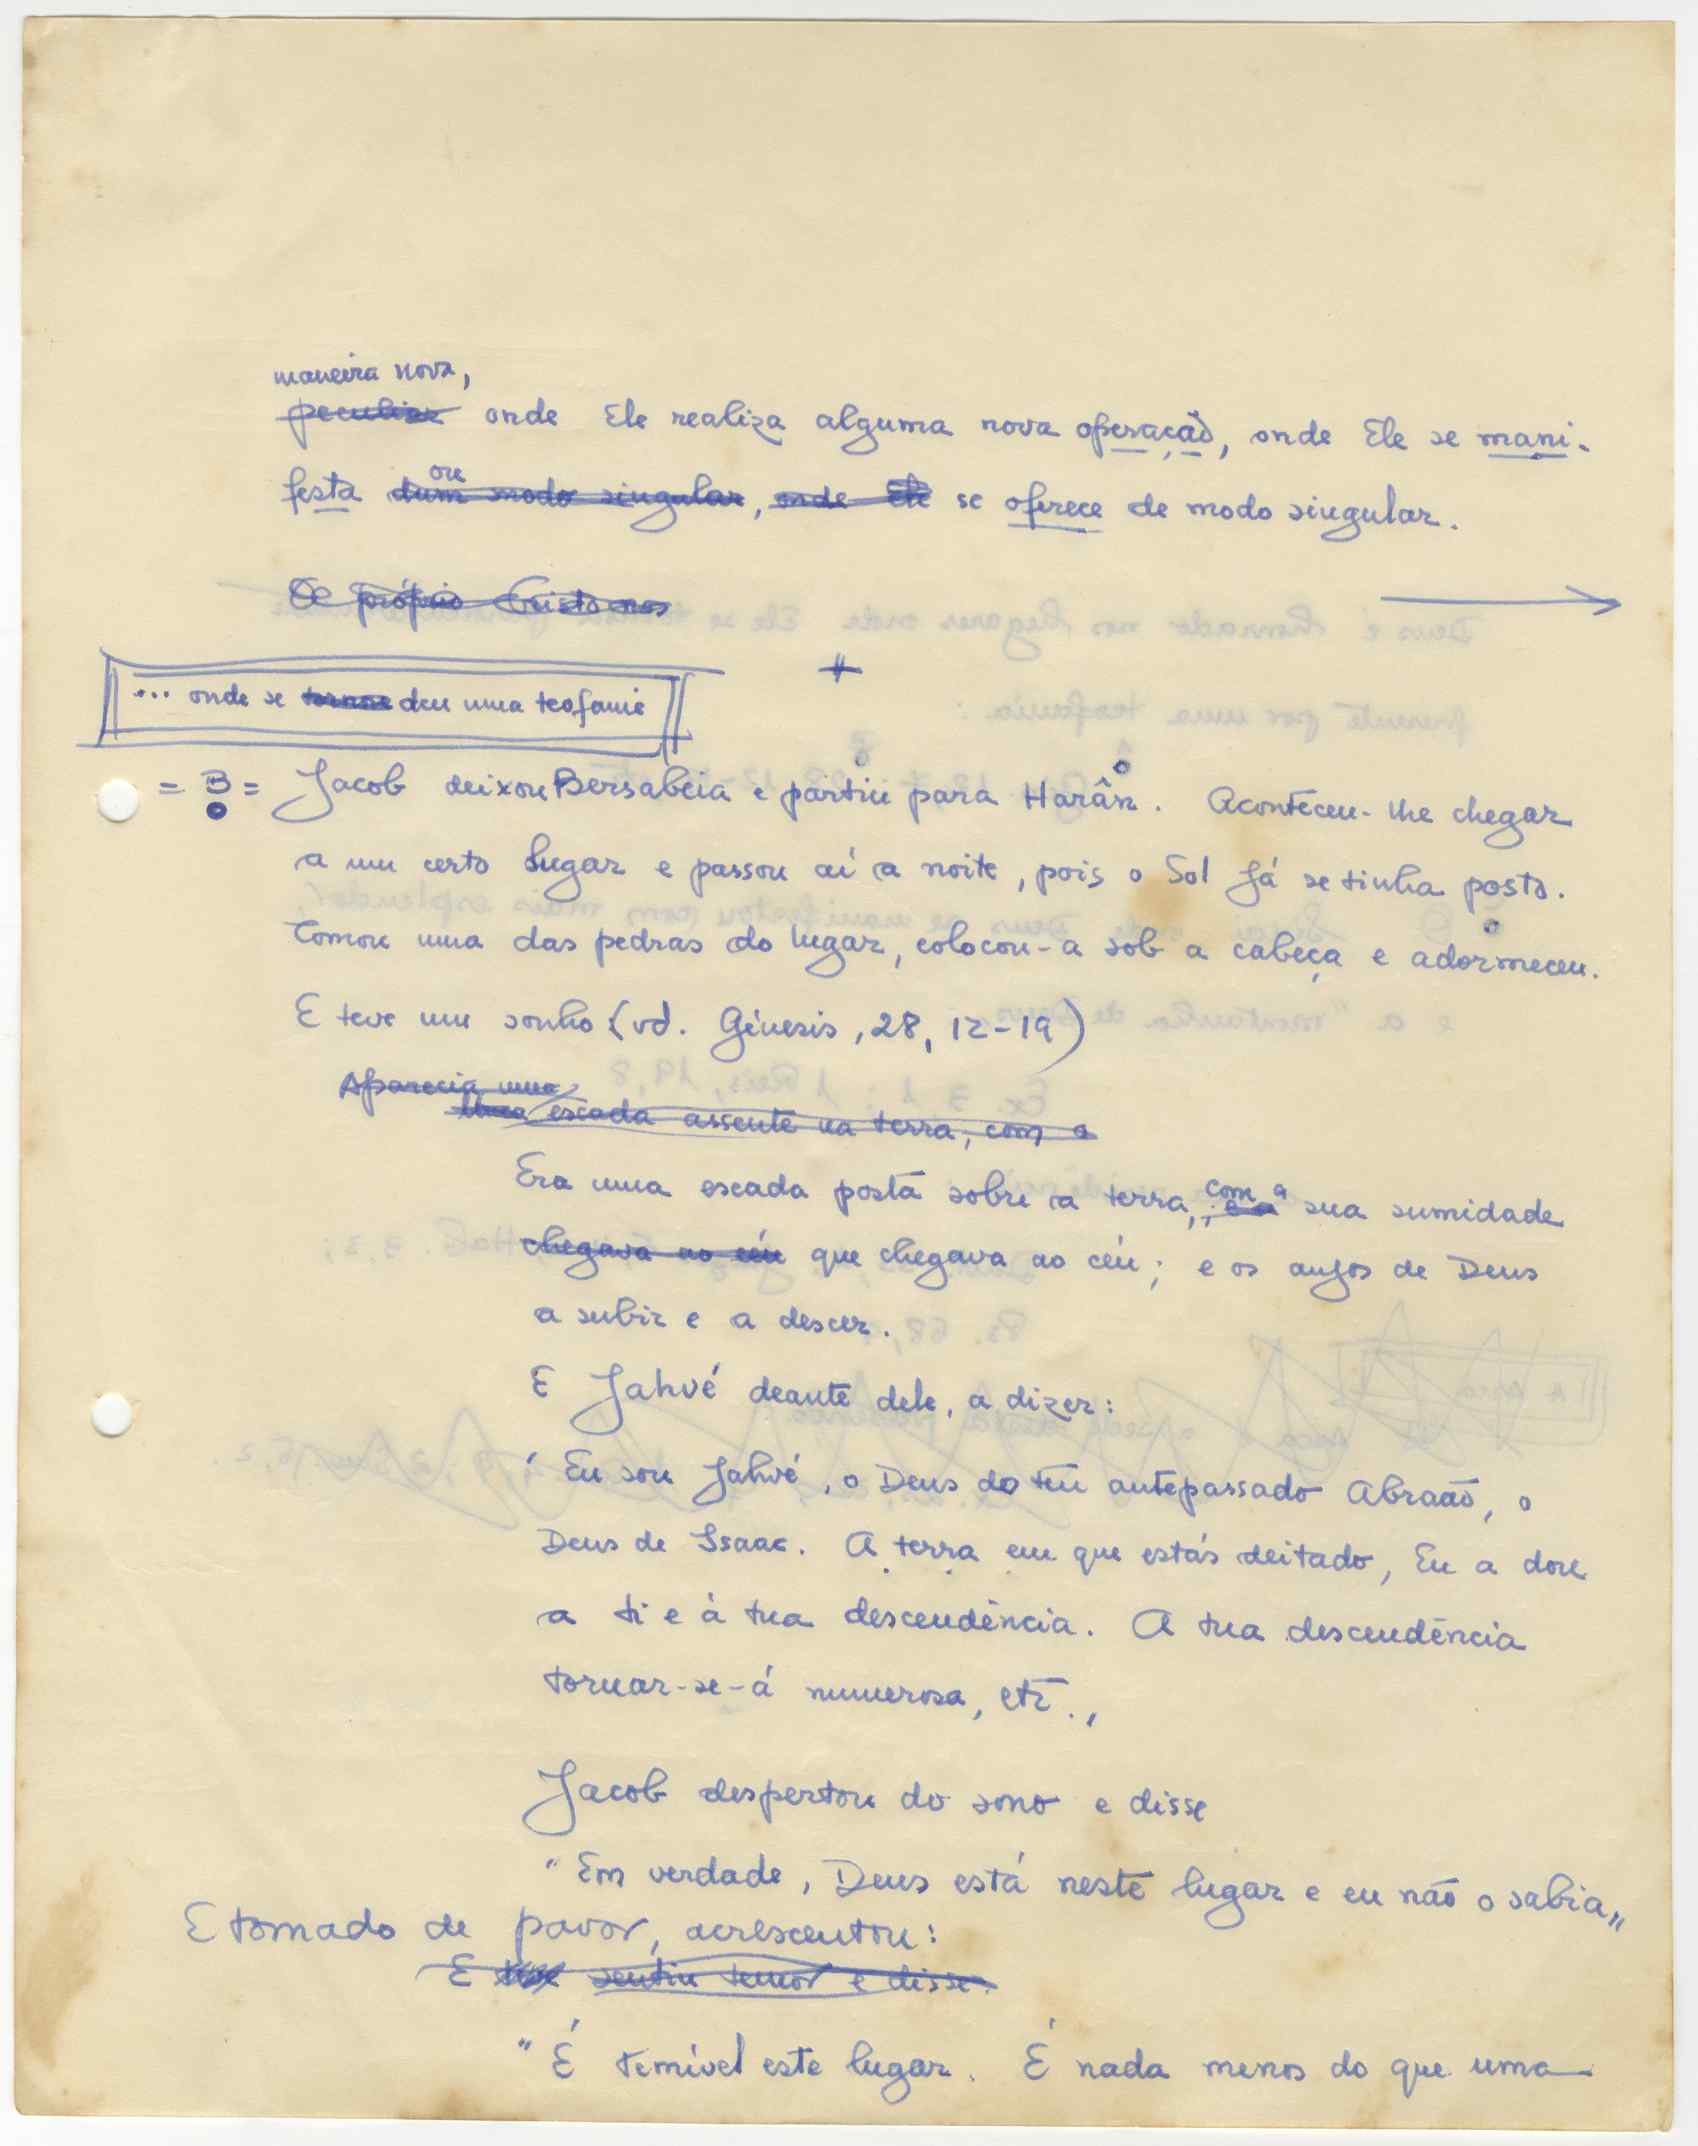 maneira nova,
peculiar onde Ele realiza alguma nova operação, onde Ele se mani-
ou
festa dum modo singular, onde Ele se oferece de modo singular.
próprio Cristo nos
... onde se tornou deu uma teofania
= B = Jacob deixou Bersabeia e partiu para Harân. Aconteceu-lhe chegar
a um certo lugar e passou aí a noite, pois o Sol já se tinha posto.
Tomou uma das pedras do lugar, colocou-a sob a cabeça e adormeceu.
E teve um sonho (vd. Génesis, 28, 12-19)
Aparecia uma
Uma escada assente na terra, com a
Era uma escada posta sobre a terra, com a sua sumidade
chegava ao céu que chegava ao céu; e os anjos de Deus
a subir e a descer.
E Jahvé deante dele, a dizer:
' Eu sou Jahvé, o Deus do teu antepassado Abraão, o
Deus de Isaac. A terra em que estás deitado, Eu a dou
a ti e à tua descendência. A tua descendência
tornar-se-á numerosa, etc.,
Jacob despertou do sono e disse
"Em verdade, Deus está neste lugar e eu não o sabia„
E tomado de pavor, acrescentou:
E sentiu temor e disse:
"É temível este lugar. É nada menos do que uma